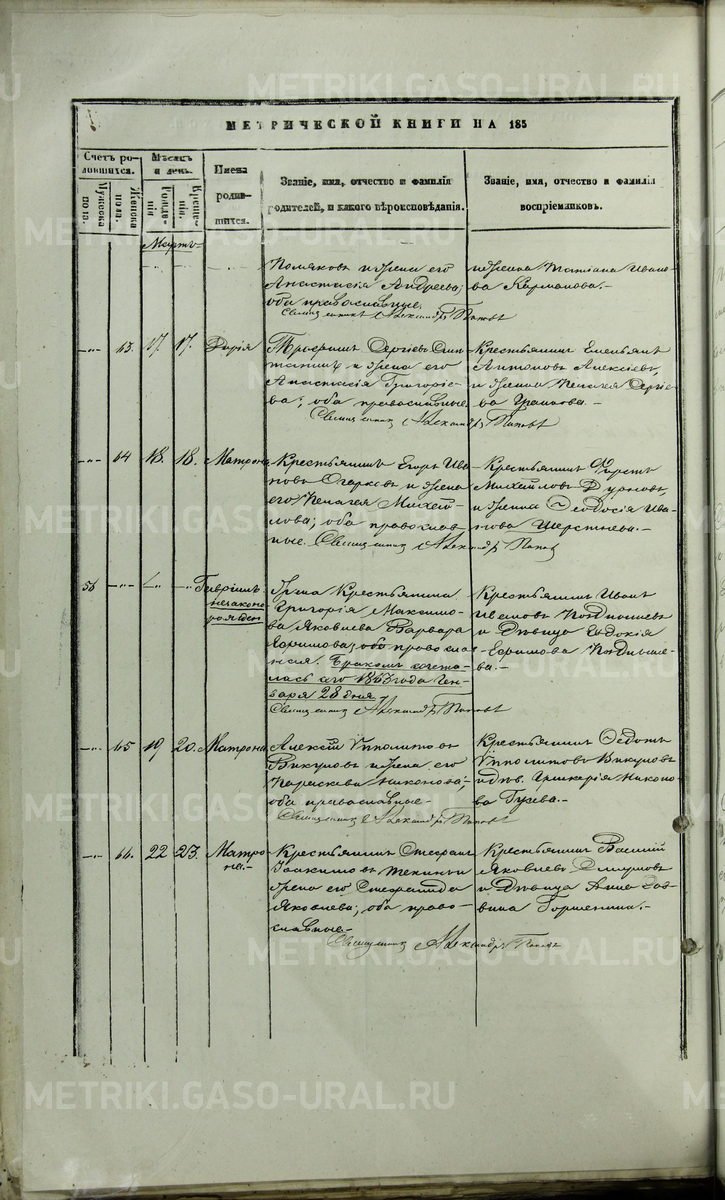 МЕТРИЧЕСКОЙ КНИГИ НА 185
Счетъ ро-
дившихся.
Мужеска
пола.
Женска
пола.
Мѣсяцъ
и день.
Рожде-
нія
Креще-
нія.
Имена
родив-
шихся.
Званіе, имя, отчество и фамилія
родителей, и какого вѣроисповѣданія.
Званіе, имя, отчество и фамилія
воспріемниковъ.
Мартъ
Поляковъ и жена его
Анастасія Андреева;
оба православные.
Священникъ Александръ Поповъ
и жена Татіана Ивано-
ва Карманова.-
63. 17. 17. Дарія
Трофимъ Сергіевъ
и жена его
Анастасія Григоріе-
ва; оба православные.
Священникъ Александръ Поповъ
Крестьянинъ Емельянъ
Антоновъ Алексіевъ,
и жена Пелагея Сергіе-
ва
64 18. 18. Матрона
Крестьянинъ Егоръ Ива-
новъ Огарковъ и жена
его Пелагея Михай-
лова; оба православ-
ные. Священникъ Александръ Поповъ
Крестьянинъ
Михайловъ Дурновъ,
и жена Ѳеодосія Ива-
нова Шерстнева.-
56 Гавріилъ
незаконо-
рожден.
Жена Крестьянина
Григорія Максимо-
ва Яковлева Варвара
Ефимова; оба правосла-
вныя. Бракомъ сочета-
лась его 1863 года Ген-
варя 28 дня.
Священникъ Александръ Поповъ
Крестьянинъ Иванъ
Ивановъ
и Дѣвица Евдокія
Ефимова
ва.-
65 19. 20. Матрона
Алексій Ипполитовъ
Викуловъ и жена его
Параскева Никонова;
оба православные.
Священникъ Александръ Поповъ
Крестьянинъ Ѳедотъ
Ипполитовъ Викуловъ
и дѣв. Гликерія Никоно-
ва Гусева.-
66. 22 23. Матро-
на.-
Крестьянинъ Стефанъ
Іоакимовъ и
жена его Стефанида
Яковлева; оба право-
славные.-
Священникъ Александръ Поповъ
Крестьянинъ Василій
Яковлевъ Смирновъ
и Дѣвица Анна Сав-
вина
METRIKI.GASO-URAL.RU